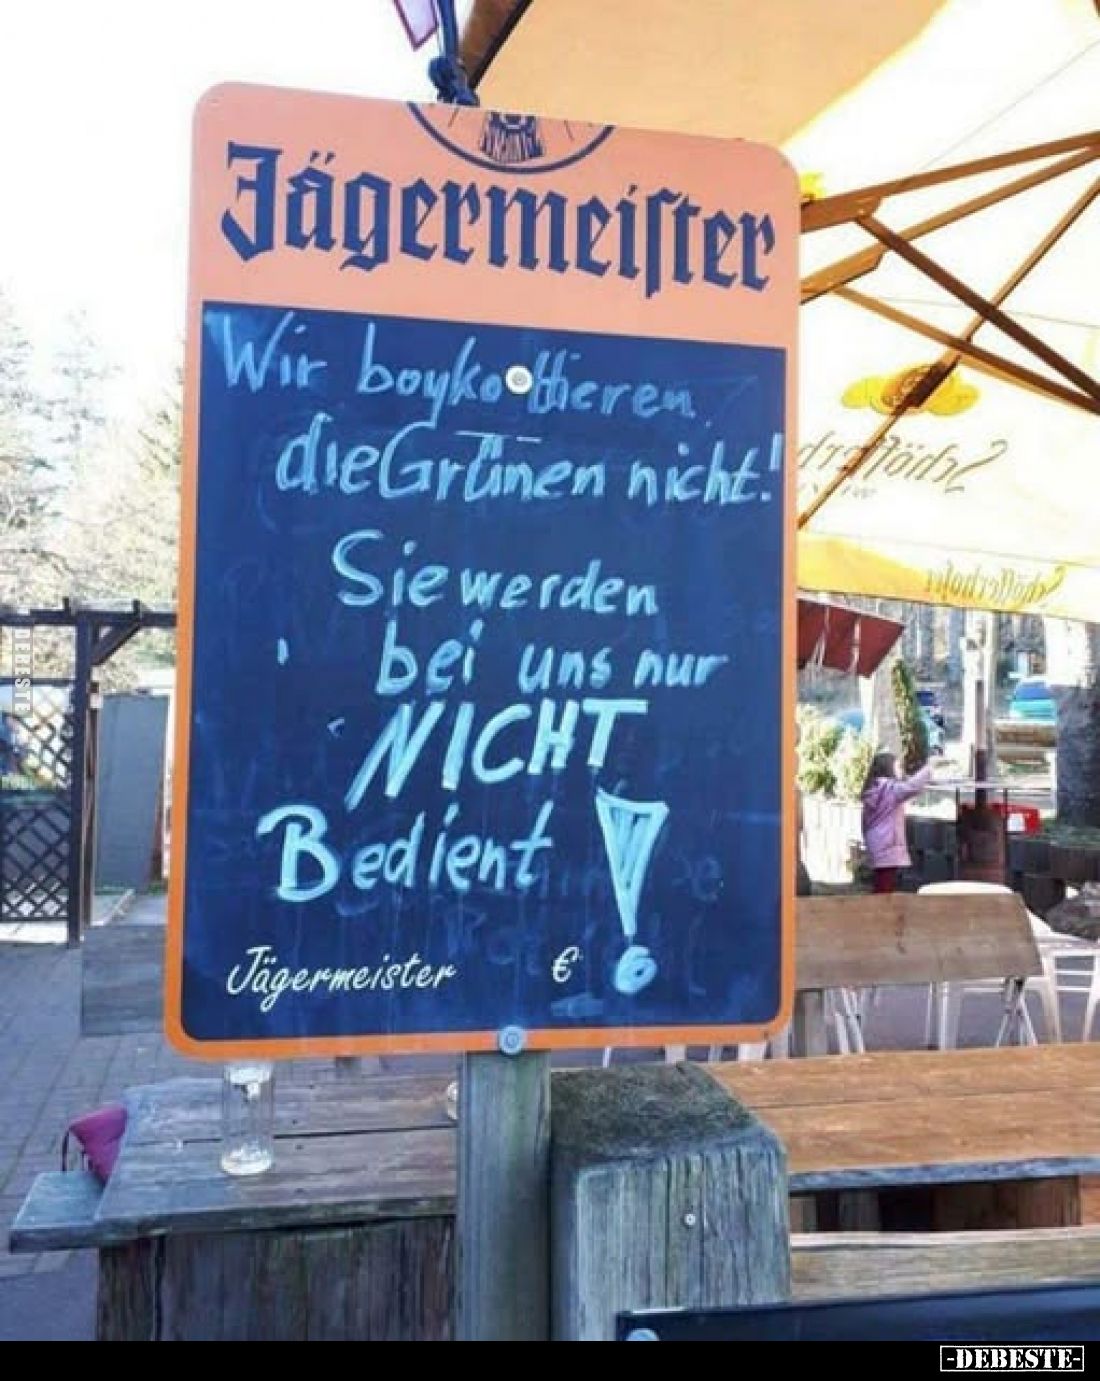 Jägermeister
Wir boykottieren
die Grünen nicht!
Sie werden
bei uns nur
NICHT
Bedient !
Jägermeister €
Schöfferhofer
-DEBESTE-